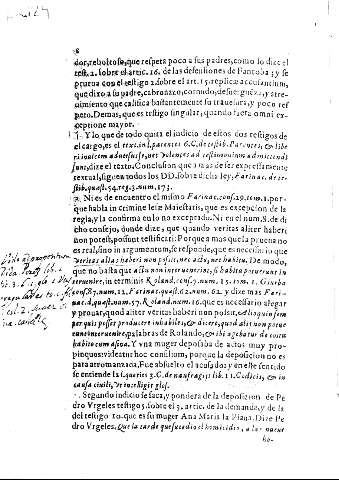 dor, reboltoso, que respeta poco a sus padres, como lo dize el
test. 2. sobre el artic. 16. de las defensiones de Fantoba; y se
prueua con el testigo 2. sobre el art. 15. replicæ accusantium,
que dixo a su padre, cabronazo, cornudo, desuerguẽça, y atre-
uimiento que califica bastantemente su trauesura, y poco res
peto. Demas, que es testigo singular, quando fuera omni ex-
ceptione mayor.
Y lo que de todo quita el indicio de estos dos testigos de
el cargo, es el text. in l. parentes 6. C. de testib. Parentes, & libe
ri inuicem aduersus se, nec volentes ad testimonium admittendi
sunt, dize el texto. Conclusion que a mas de ser expressamente
textual, siguen todos los DD. sobre dicha ley, Farinac. de te-
stib. quæst. 54. reg. 3. num. 173.
Ni es de encuentro el mismo Farinac. cons. 29. tom. 1. por-
que habla in crimine lesæ Maiestatis, que es excepcion de la
regla, y la confirma en lo no exceptado. Ni en el num. 8. de di
cho consejo, donde dize, que quando veritas aliter haberi
non potest, possunt testificari: Porque a mas que la prueua no
es real, sino in argumentum, se responde, que es necessario que
veritas alias haberi non possit, nec actu, nec habitu. De modo,
que no basta que actu non interuenerint, si habitu potuerunt in
teruenire, in terminis Roland. cons. 7. num. 15. tom. 1. Giurba
cons. 87. num. 12. Farinac. quæst. 62. num. 62. y dize mas Fari-
nac. d. quæst. num. 57. Roland. num. 16. que es necessario alegar
y prouar, quod aliter veritas haberi non possit, Alioquin sem
per quis posset producere inhabiles, & dicere, quod alij non potue
runt interuenire, palabras de Rolando, & ibi agebatur de coitu
habito cum asina. Y vna muger depossaba de actos muy pro-
pinquos: videatur hoc consilium, porque la deposicion no es
para atromanzada, Fue absuelto el acusado: y en este sentido
se entiende la l. quoties 3. C. de naufragijs lib. 11. C. dicis, & in
causa ciuili, vt in intelligit gloss.
Segundo indicio se saca, y pondera de la deposicion de Pe
dro Vrgeles testigo 5. sobre el 9. artic. de la demanda, y de la
del testigo 10. que es su muger Ana Maria la Plana. Dize Pe
dro Vrgeles, Que la tarde que sucedio el homicidio, a las nueue
ho-